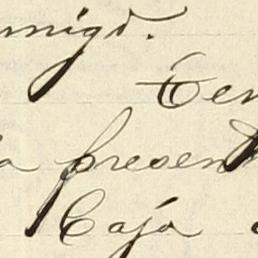 amigo.
Ten
a present
Caja